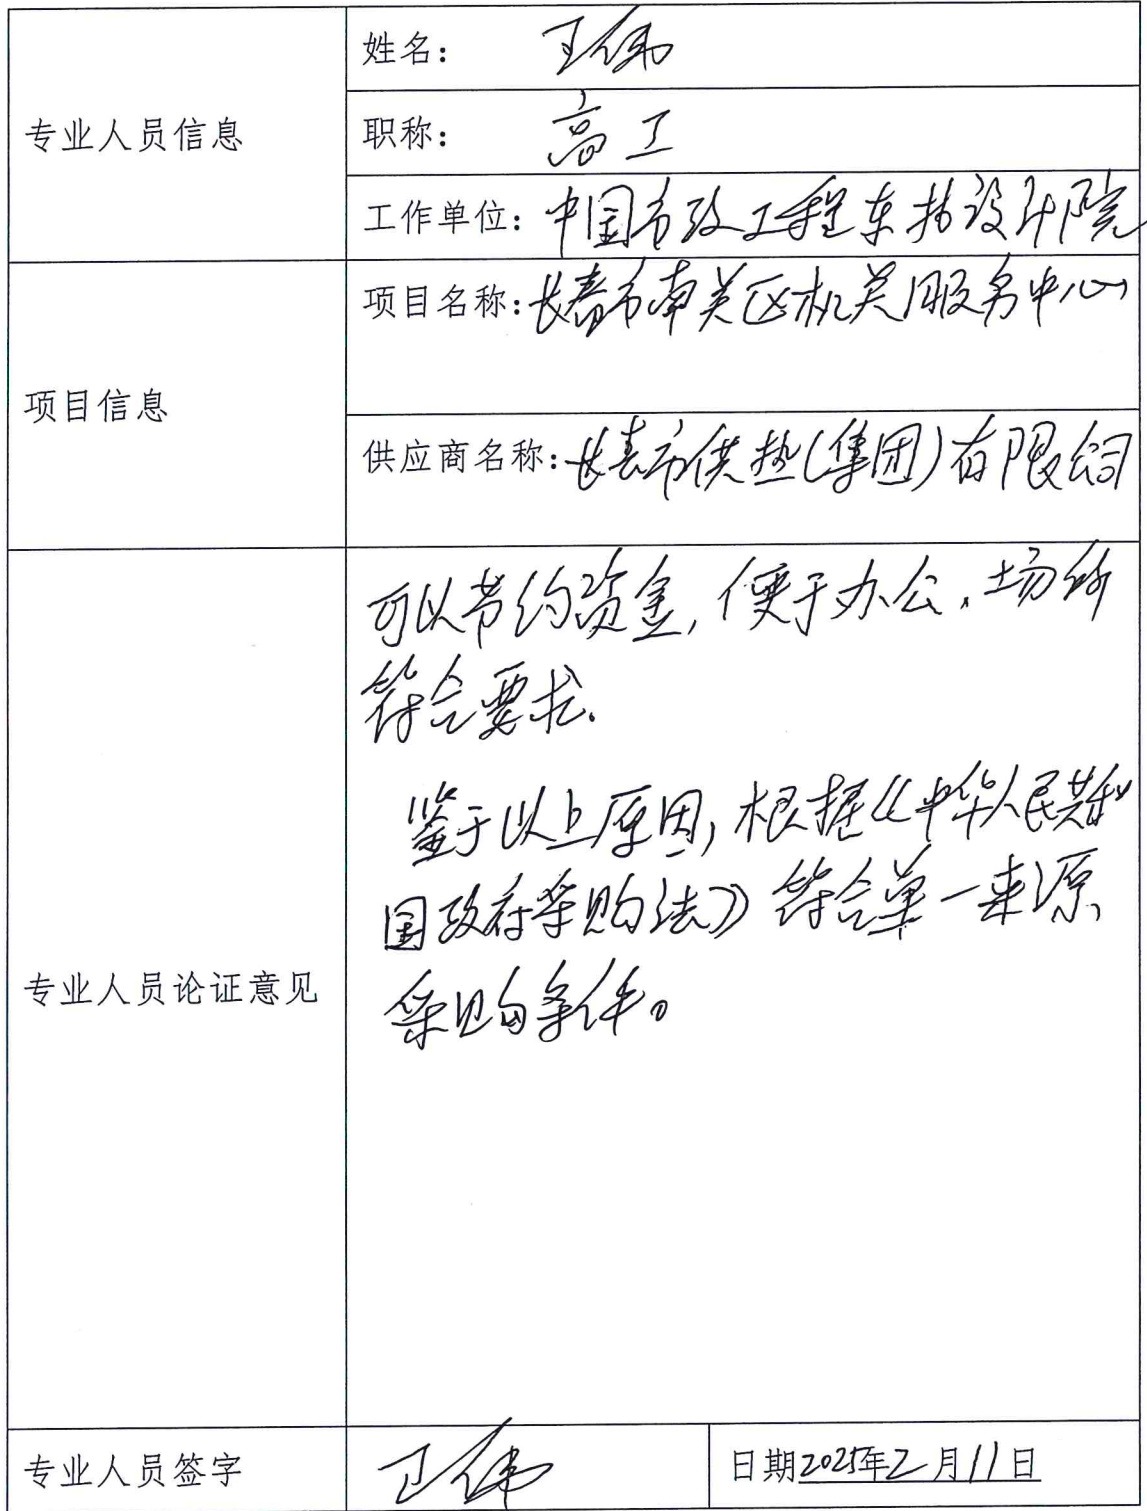 专业人员信息
姓名：王伟
职称：高工
工作单位：中国市政工程东北设计院
项目信息
项目名称：长春市南关区机关服务中心
供应商名称：长春市供热(集团)有限公司
专业人员论证意见
可以节约资金，便于办公，场所
符合要求.
鉴于以上原因，根据《中华人民共和
国政府采购法》符合单一来源
采购条件。
专业人员签字 王伟
日期2025年2月11日